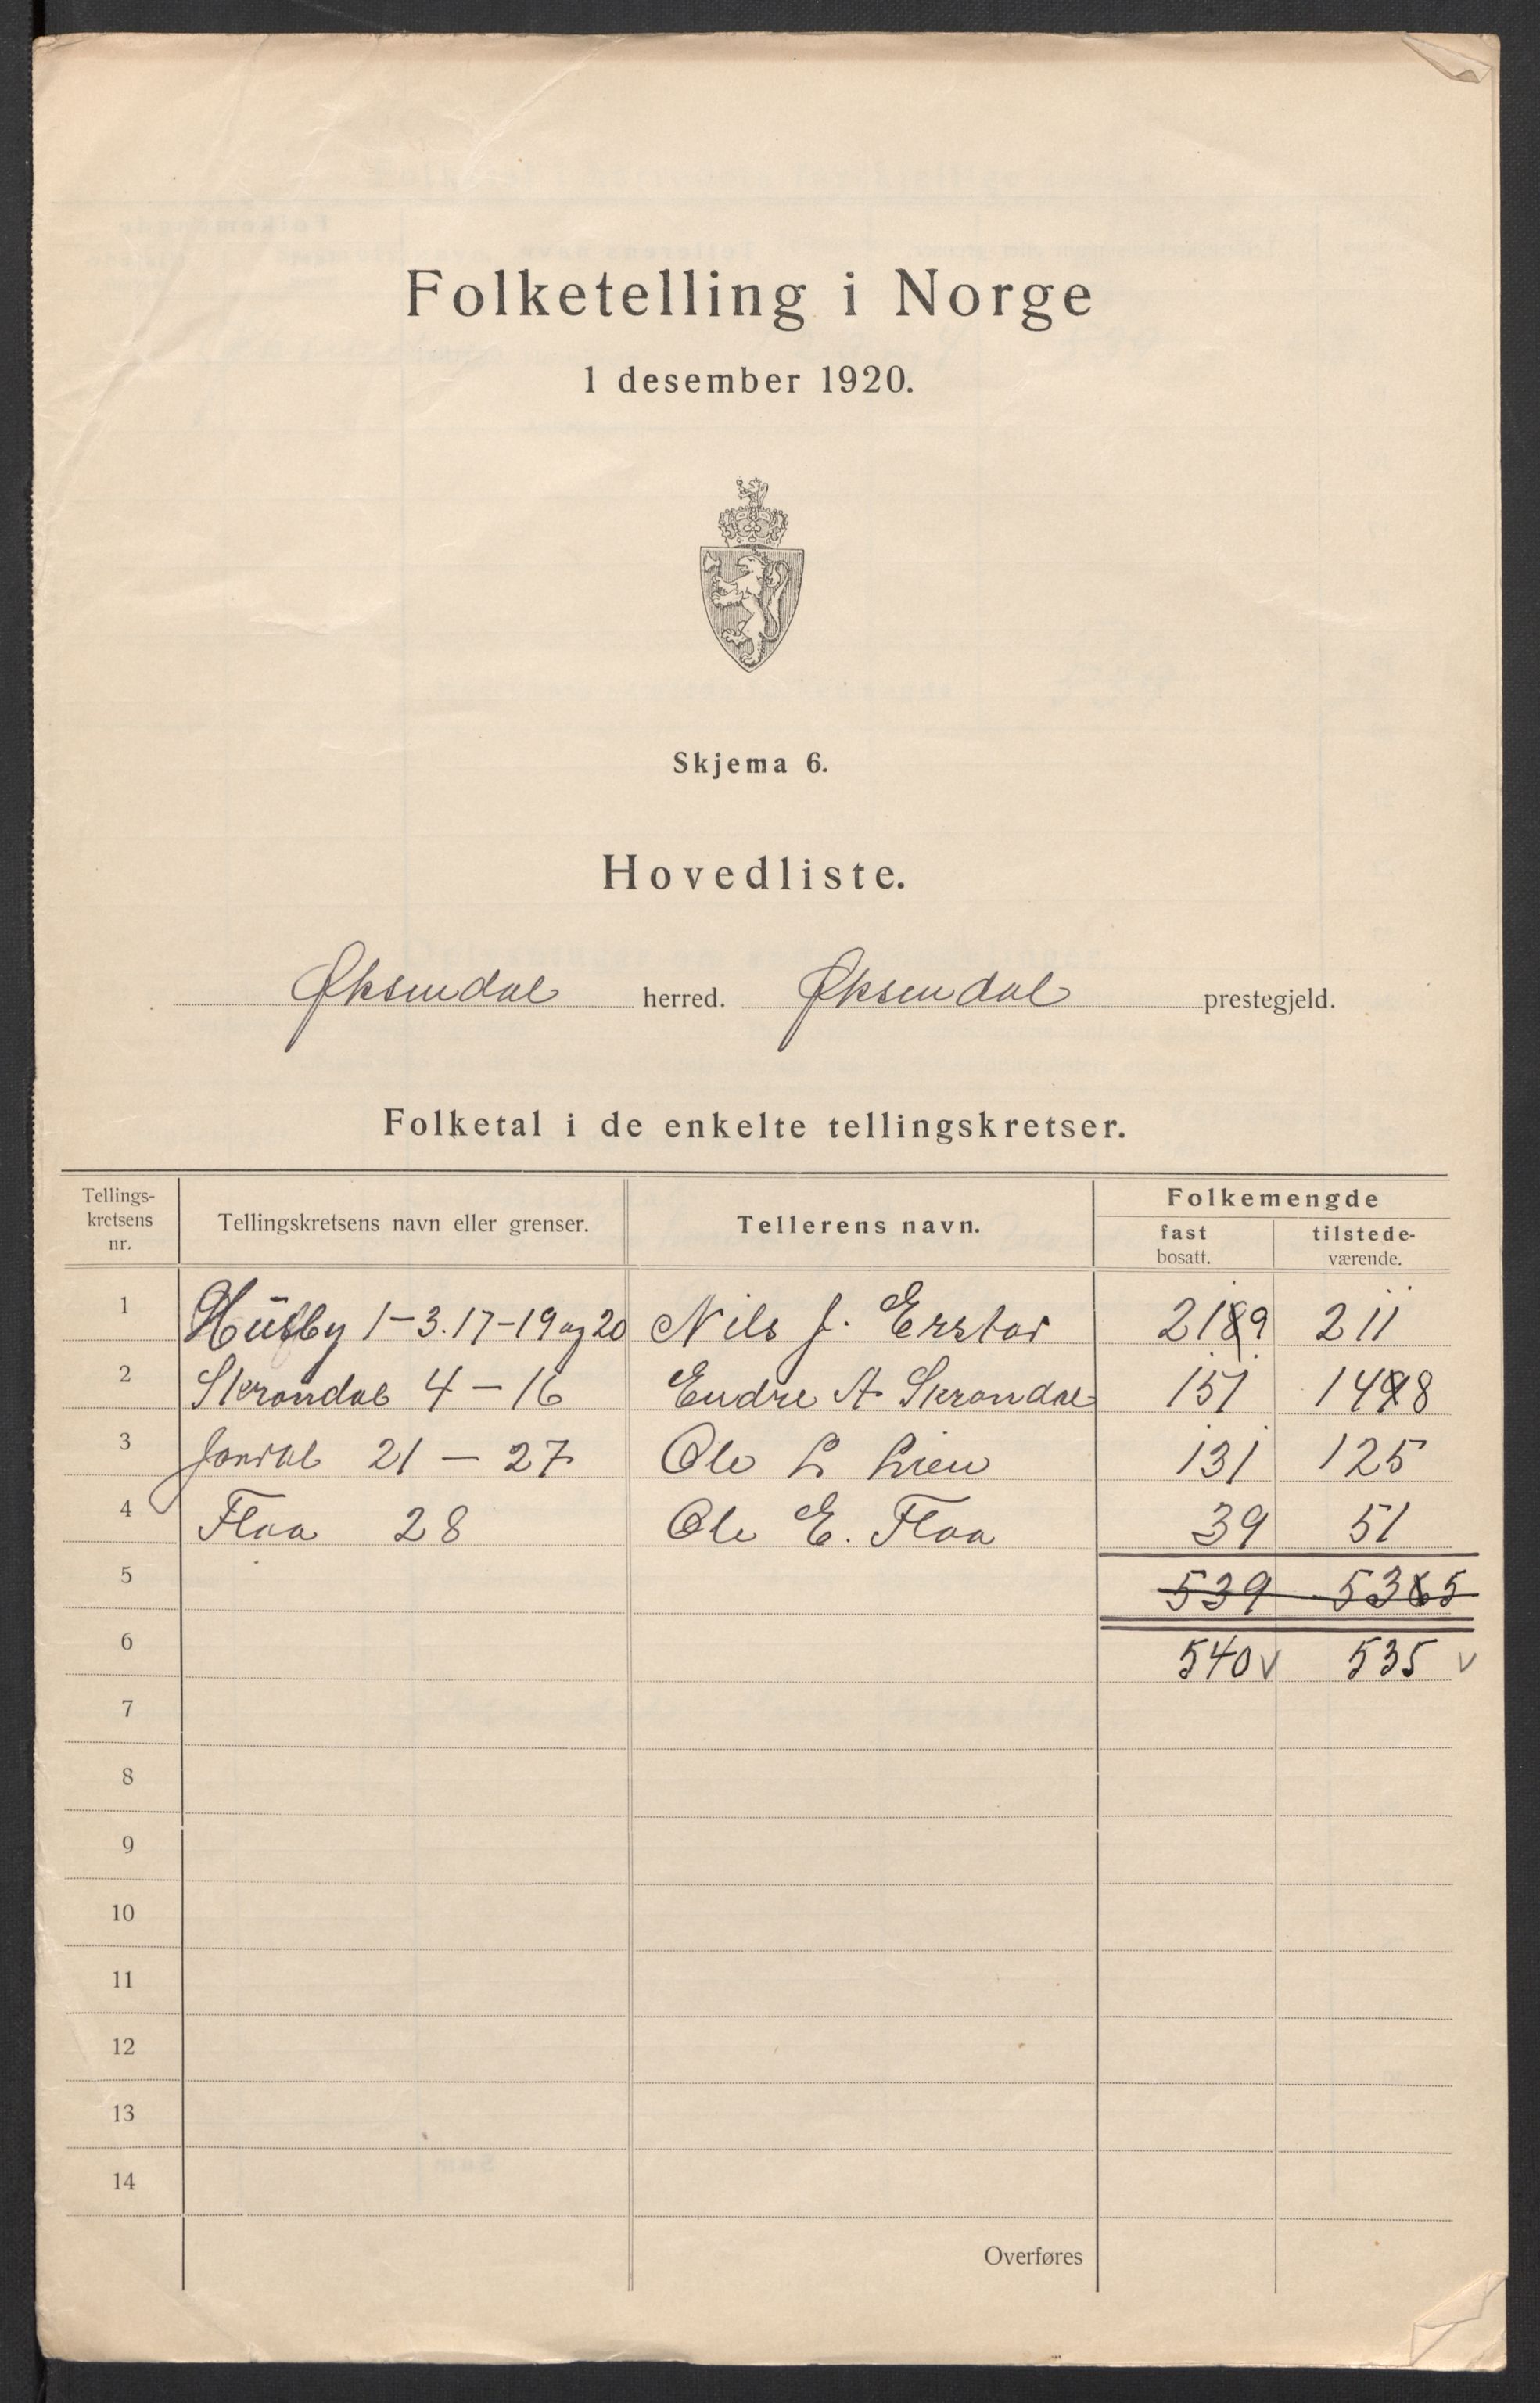 Folketelling i Norge
1 desember 1920.
Skjema 6.
Hovedliste.
Øksendal herred. Øksendal prestegjeld.
Folketal i de enkelte tellingskretser.
Tellings-
kretsens
nr.
Tellingskretsens navn eller grenser.
Tellerens navn.
Folkemengde
fast
bosatt.
tilstede-
værende.
1 Husby 1-3. 17-19 og 20 Nils J. Erstad 2189 211
2 Skrondal 4-16 Endre A Skrondal 151 1498
3 Jordal 21-27 Ole L Lien 131 125
4 Flaa 28 Ole E. Flaa 39 51
5 539 5365
6 540 v 535 v
7
8
9
10
11
12
13
14
Overføres